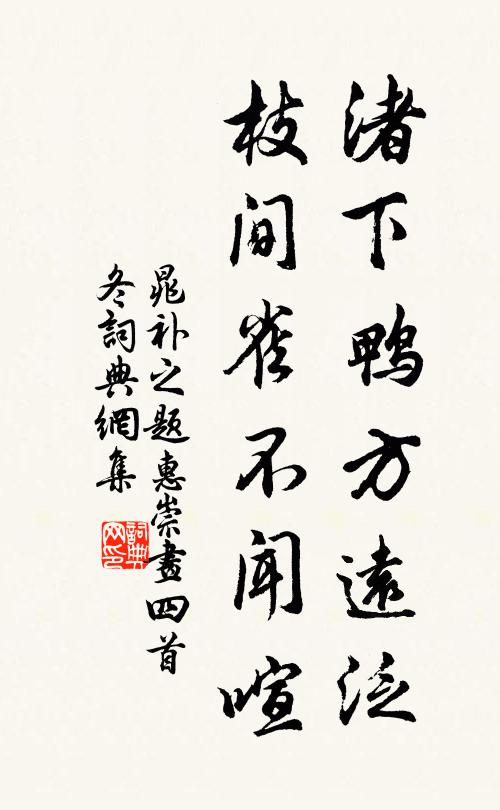 渚下鸭方遠泛
枝间雀不闻喧
晁补之题惠崇畫四首
冬詞典網集
詞典网印